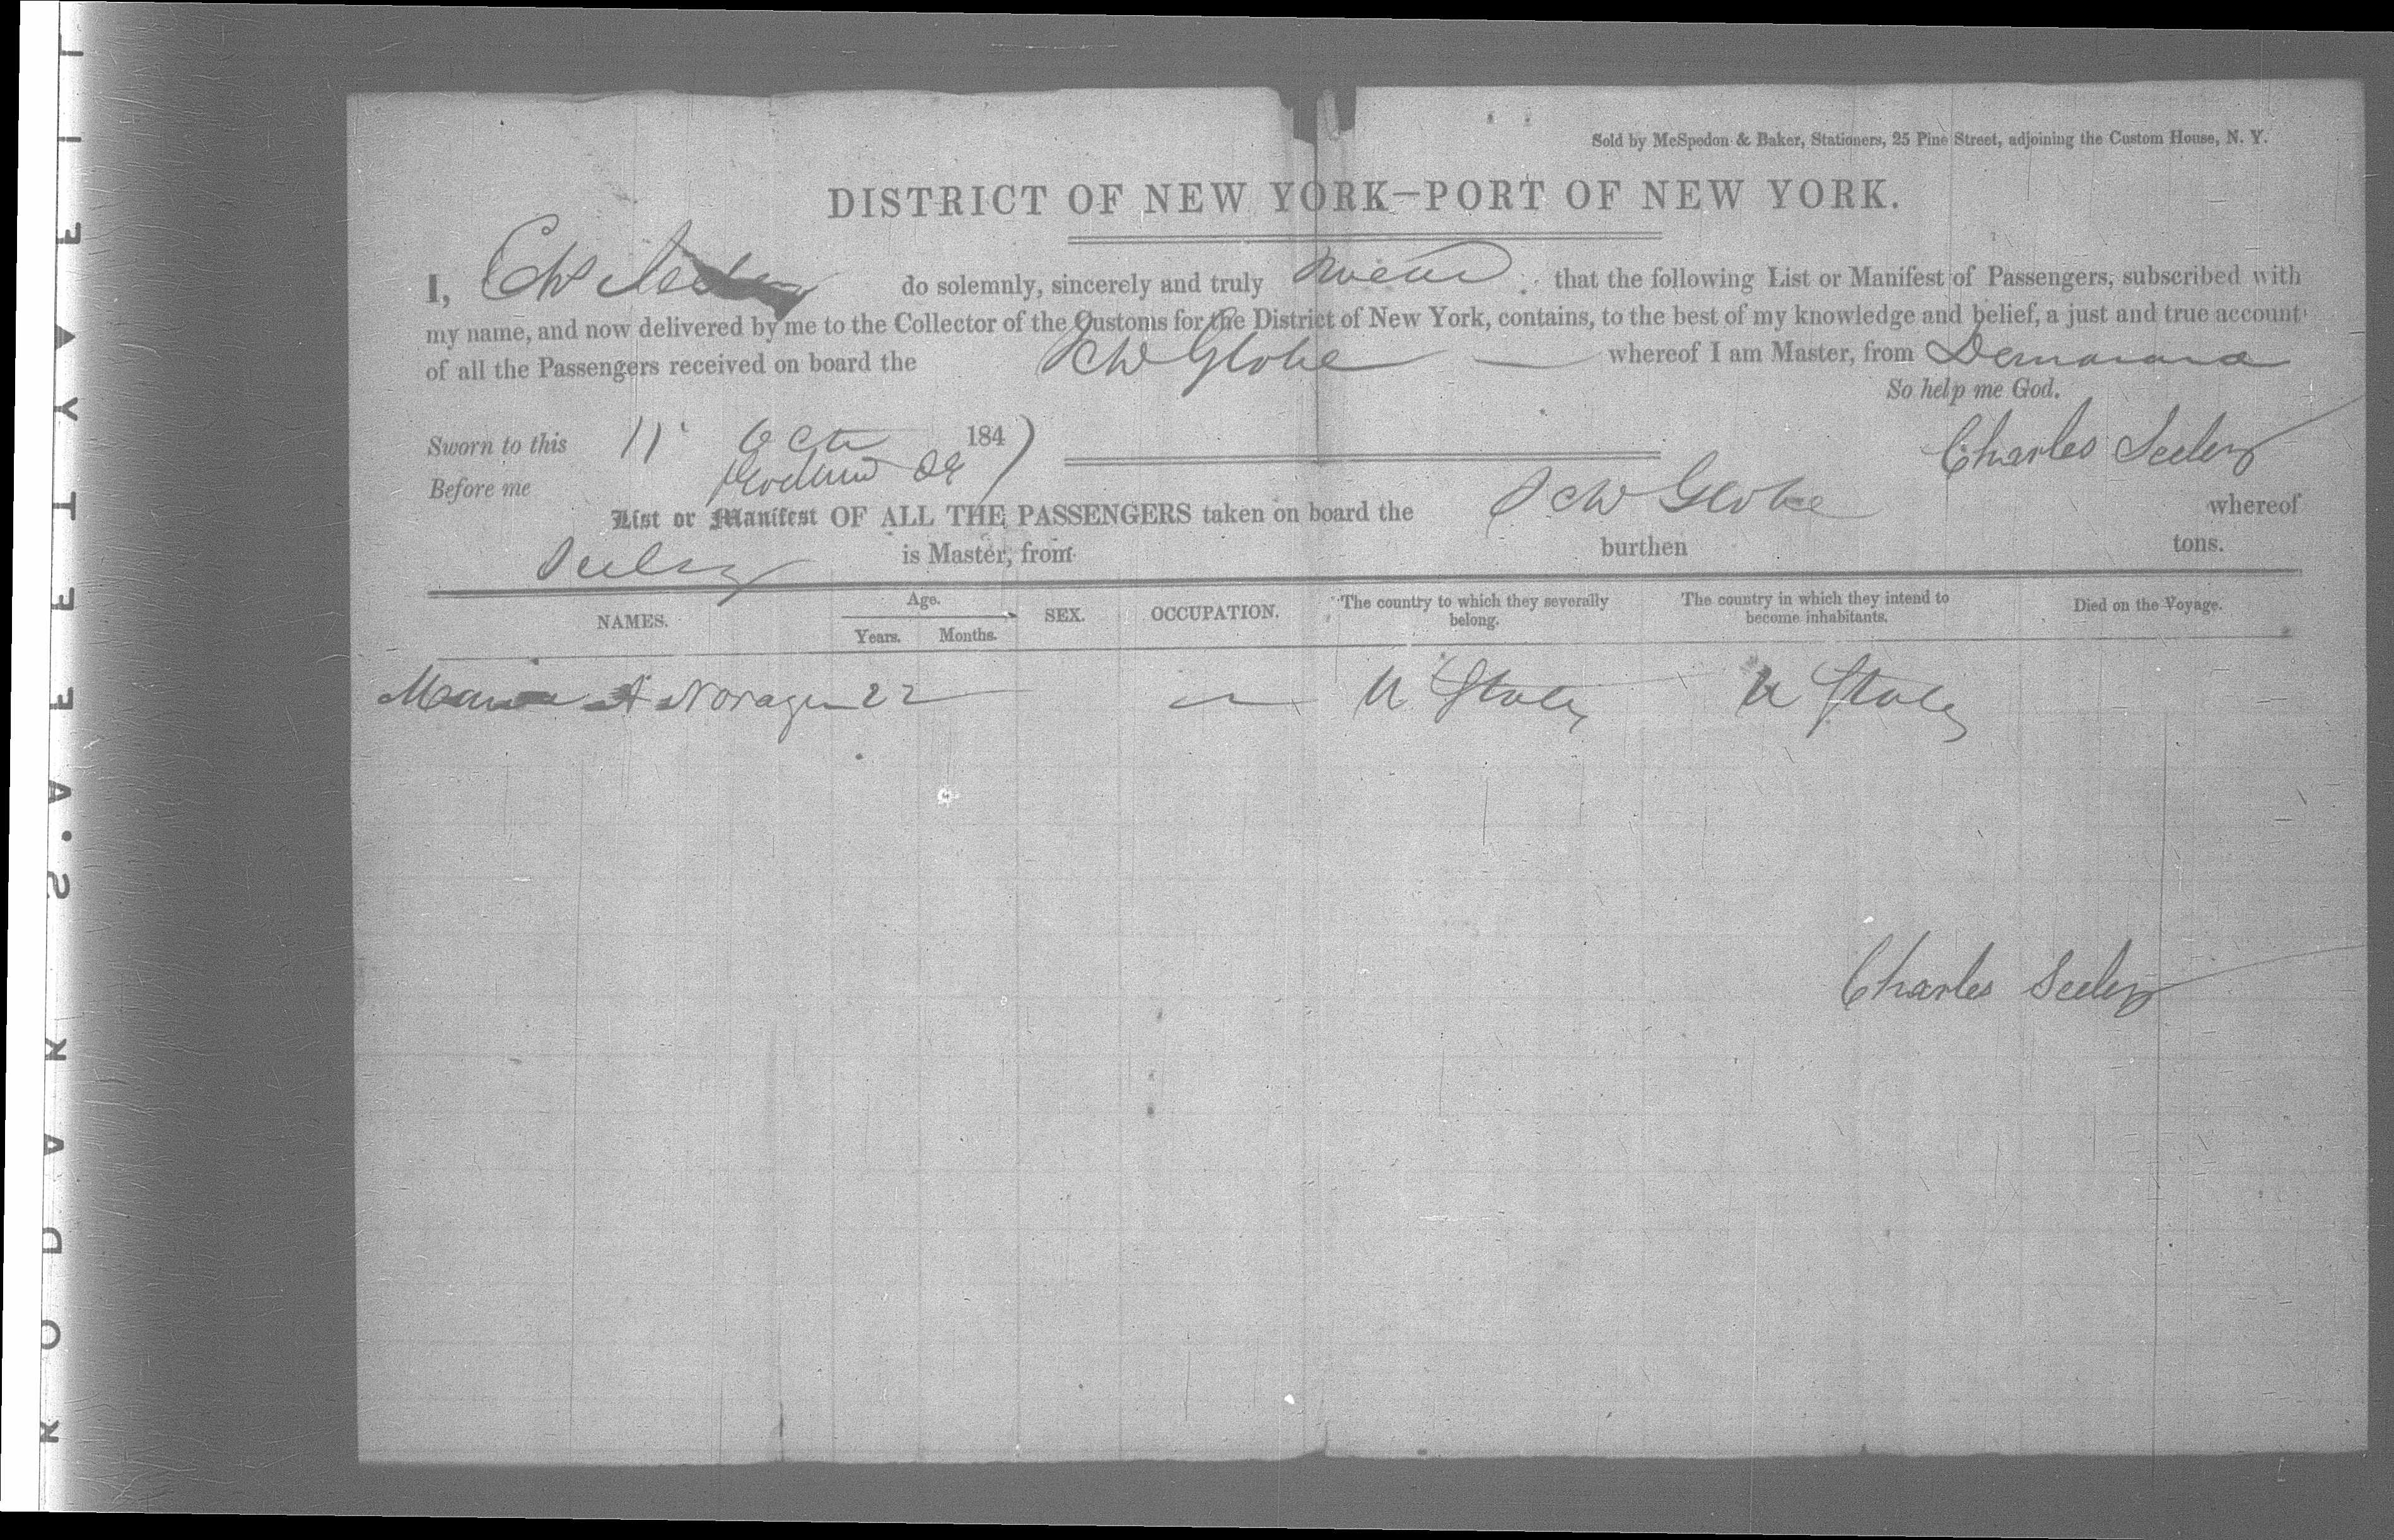 Sold by McSpedon & Baker, Stationers, 25 Pine Street, adjoining the Custom House, N. Y.
DISTRICT OF NEW YORK—PORT OF NEW YORK.
I, Ch Seeley do solemnly, sincerely and truly swear that the following List or Manifest of Passengers, subscribed with
my name, and now delivered by me to the Collector of the Customs for the District of New York, contains, to the best of my knowledge and belief, a just and true account
of all the Passengers received on board the Sch Globe whereof I am Master, from Demarara
So help me God.
Sworn to this 11 Octr 1847
Charles Seeley
Before me
List or Manifest OF ALL THE PASSENGERS taken on board the Sch Globe whereof
Seeley is Master, from burthen tons.
NAMES. Age. Years. Months. SEX. OCCUPATION. The country to which they severally belong. The country in which they intend to become inhabitants. Died on the Voyage.
A 22 U States U States
Charles Seeley
SAFETY FILM
KODAK